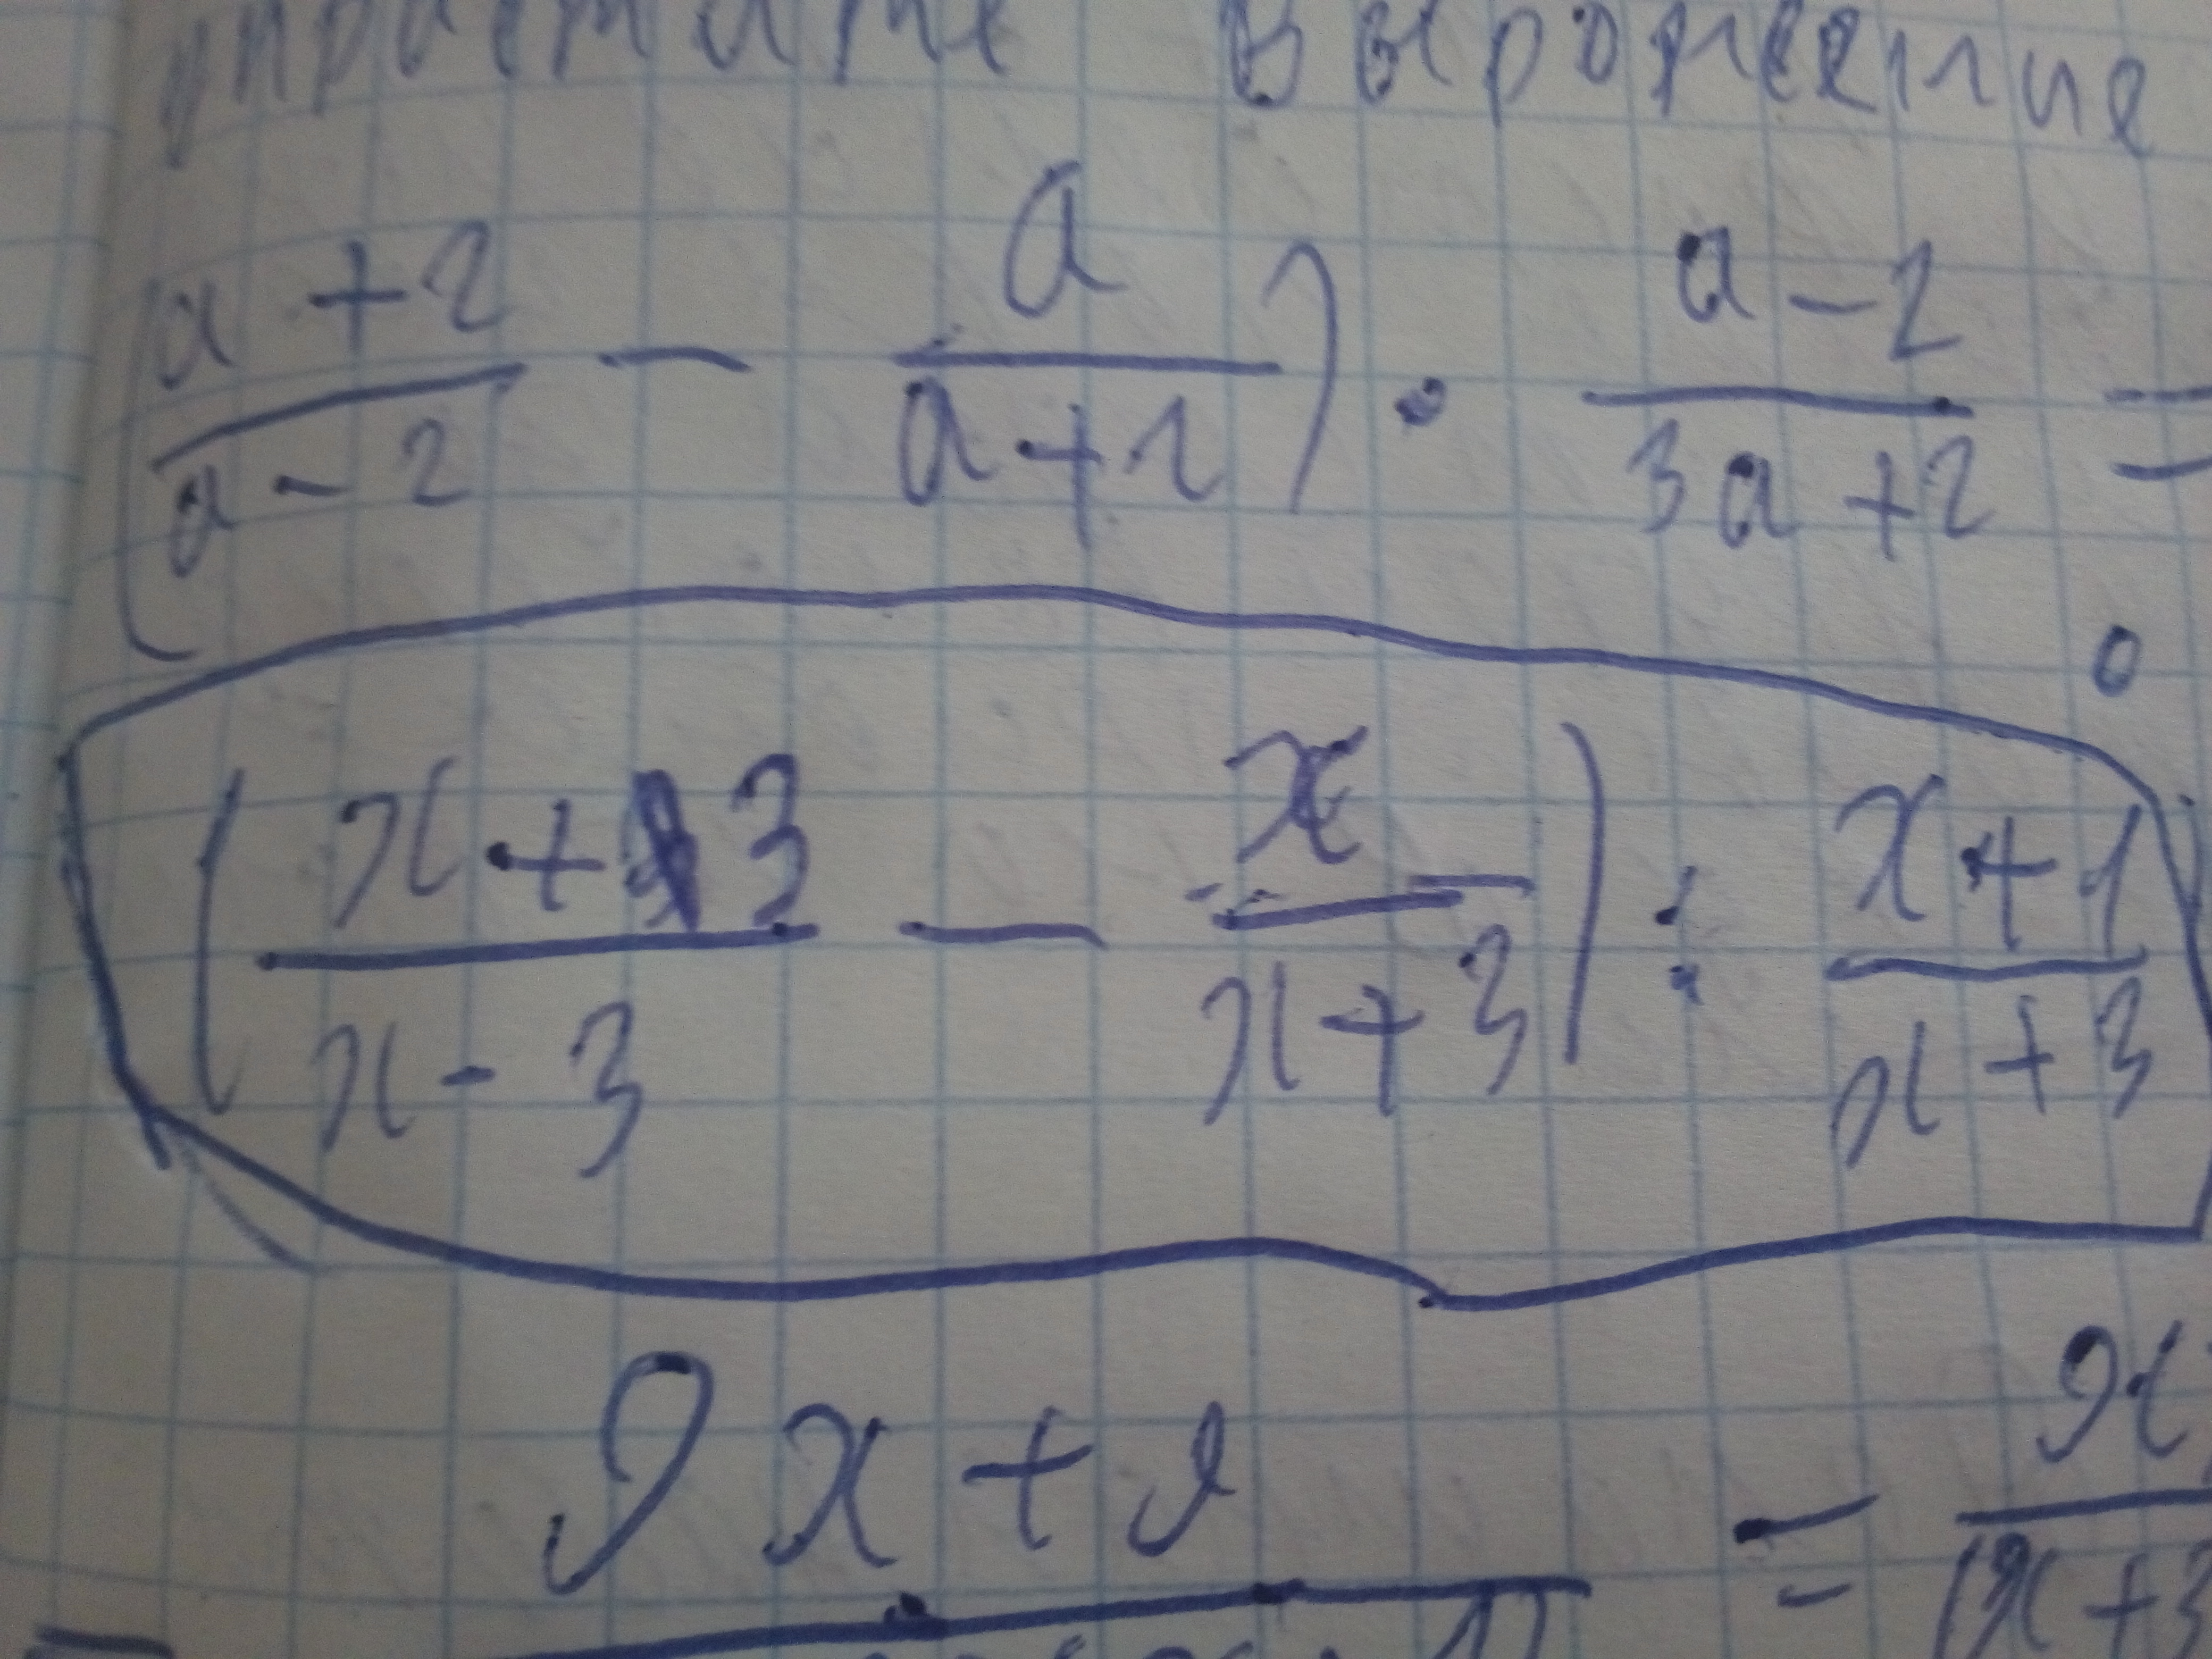 упростите выражение
(a+2/a-2 - a/a+2) · a-2/3a+2 =
(x+3/x-3 - x/x+3) : x+1/x+3
9x+9